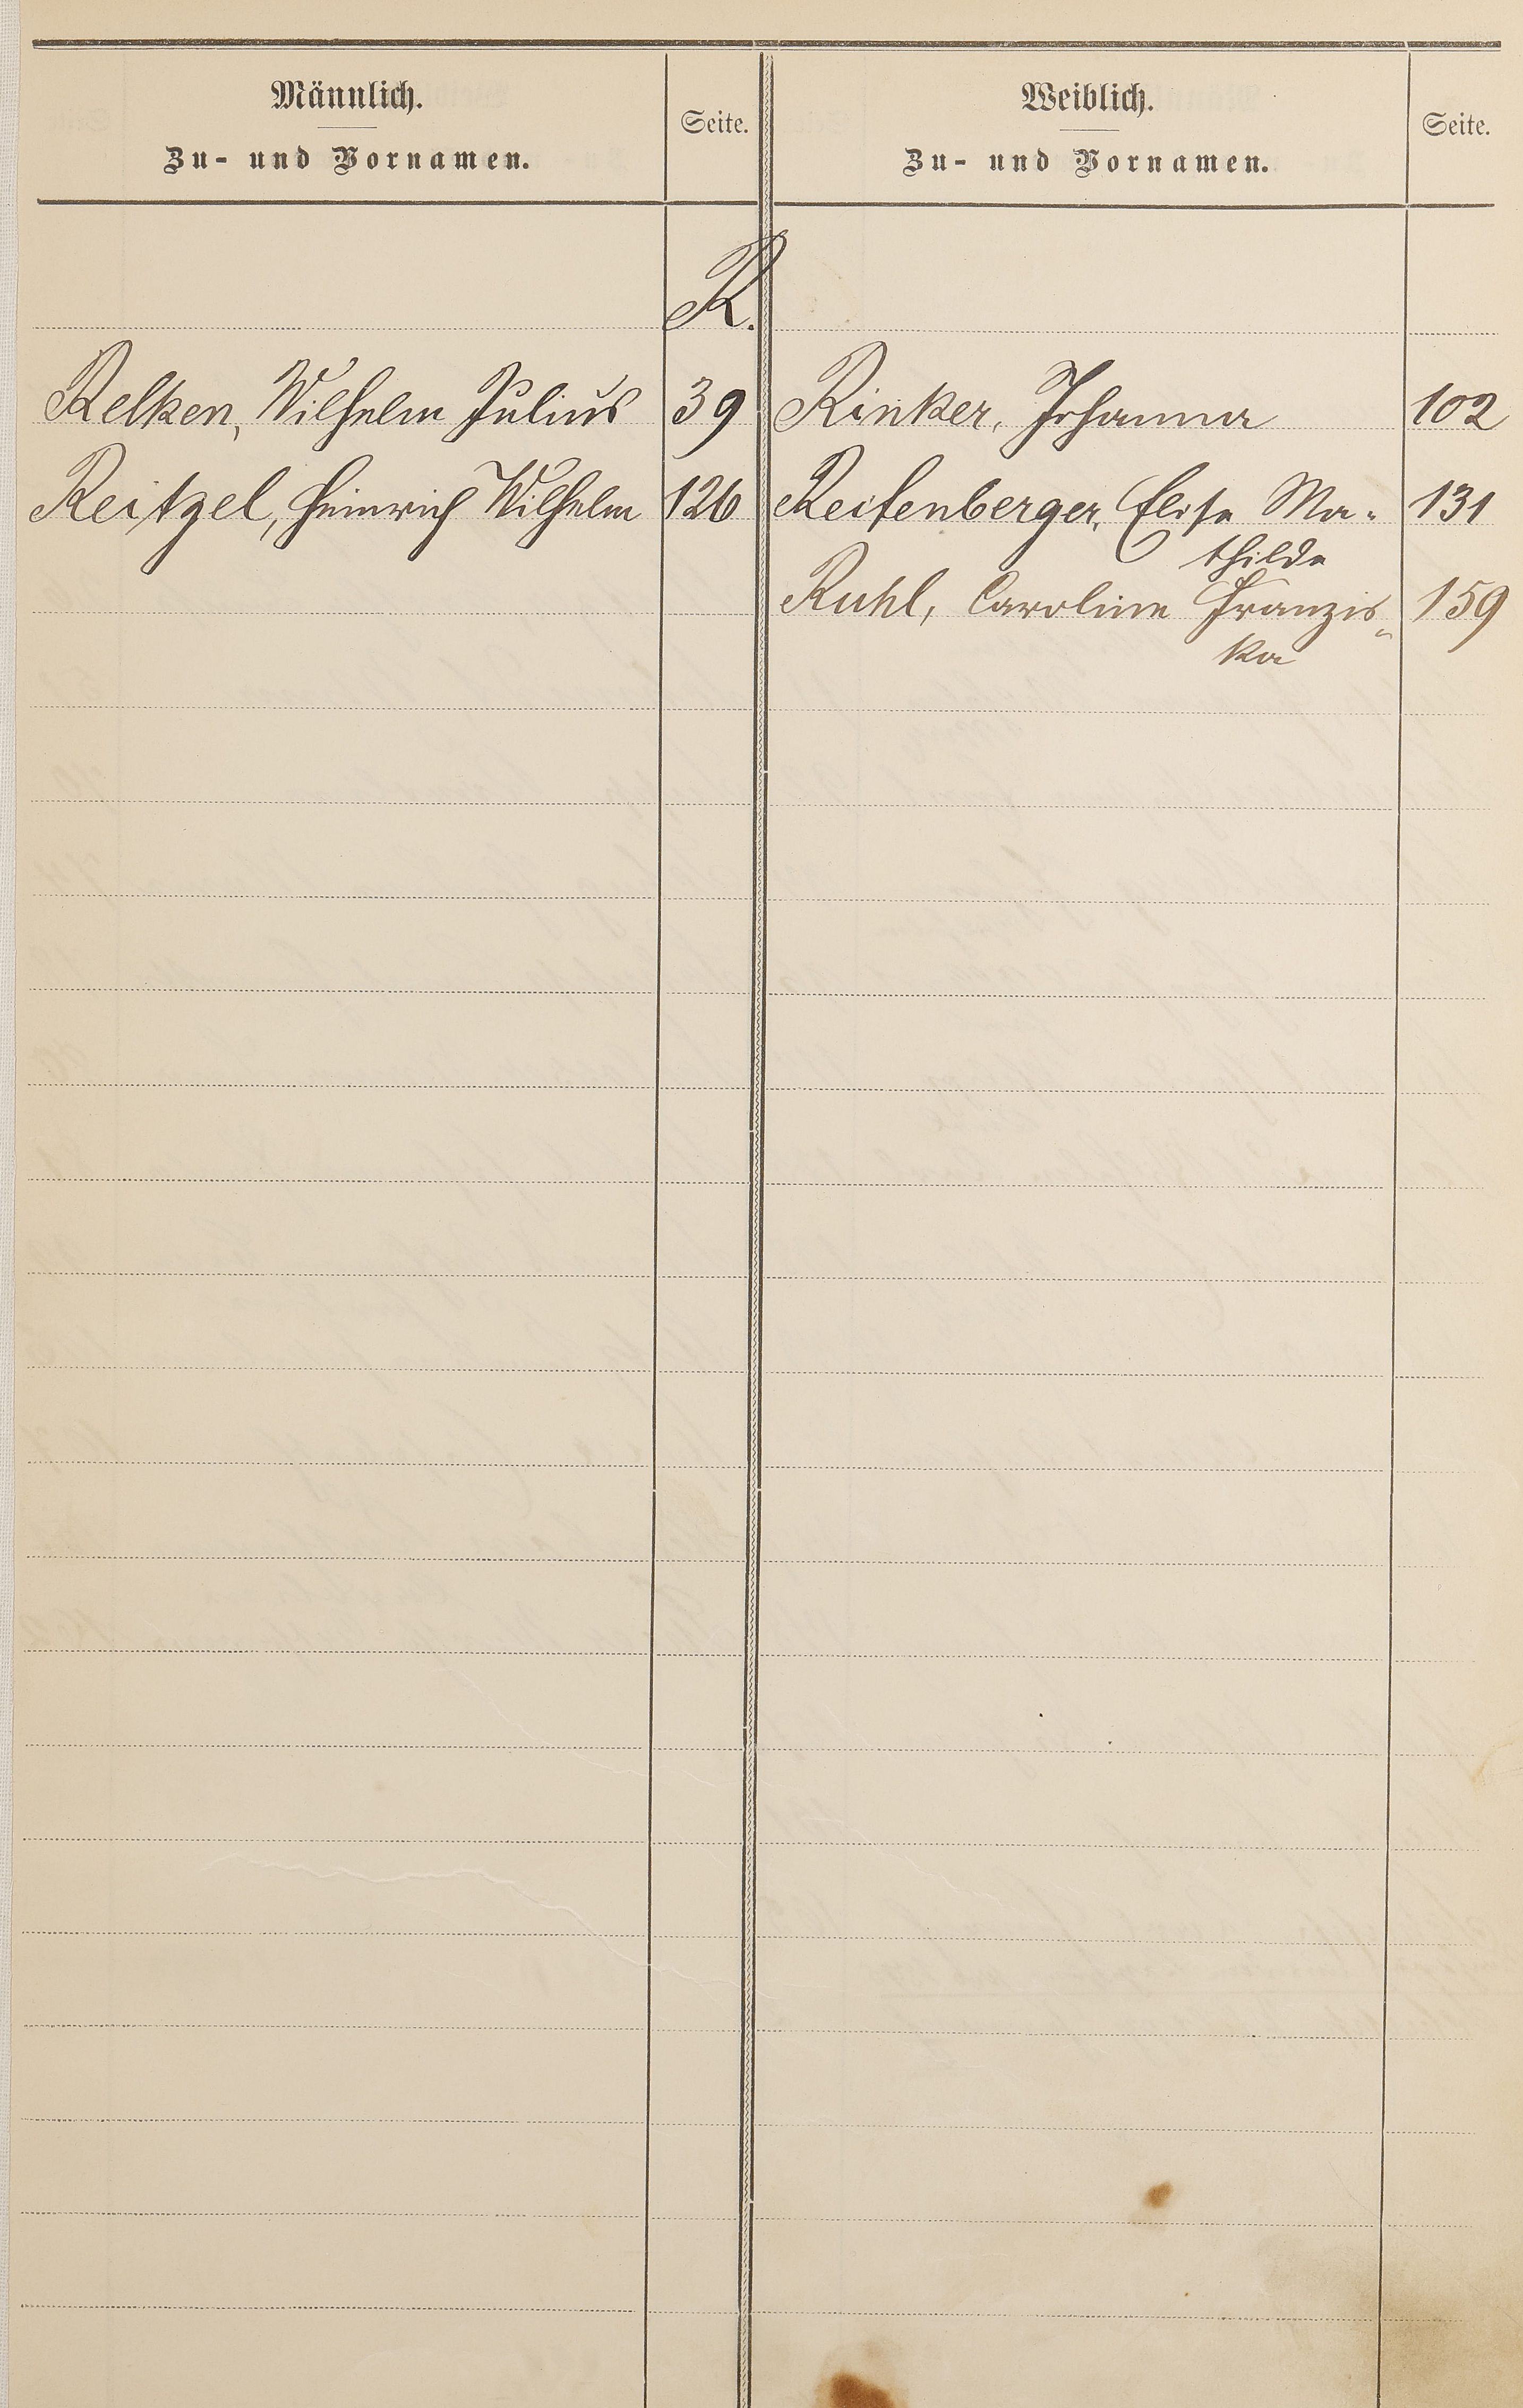 Männlich. Seite. Weiblich. Seite.
Zu- und Vornamen. Zu- und Vornamen.
R.
Relken, Wilhelm Julius 39 Rinker, Johanna 102
Reitzel, Heinrich Wilhelm 126 Reifenberger, Elise Ma- 131
thilde
Ruhl, Caroline Franzis- 159
ka